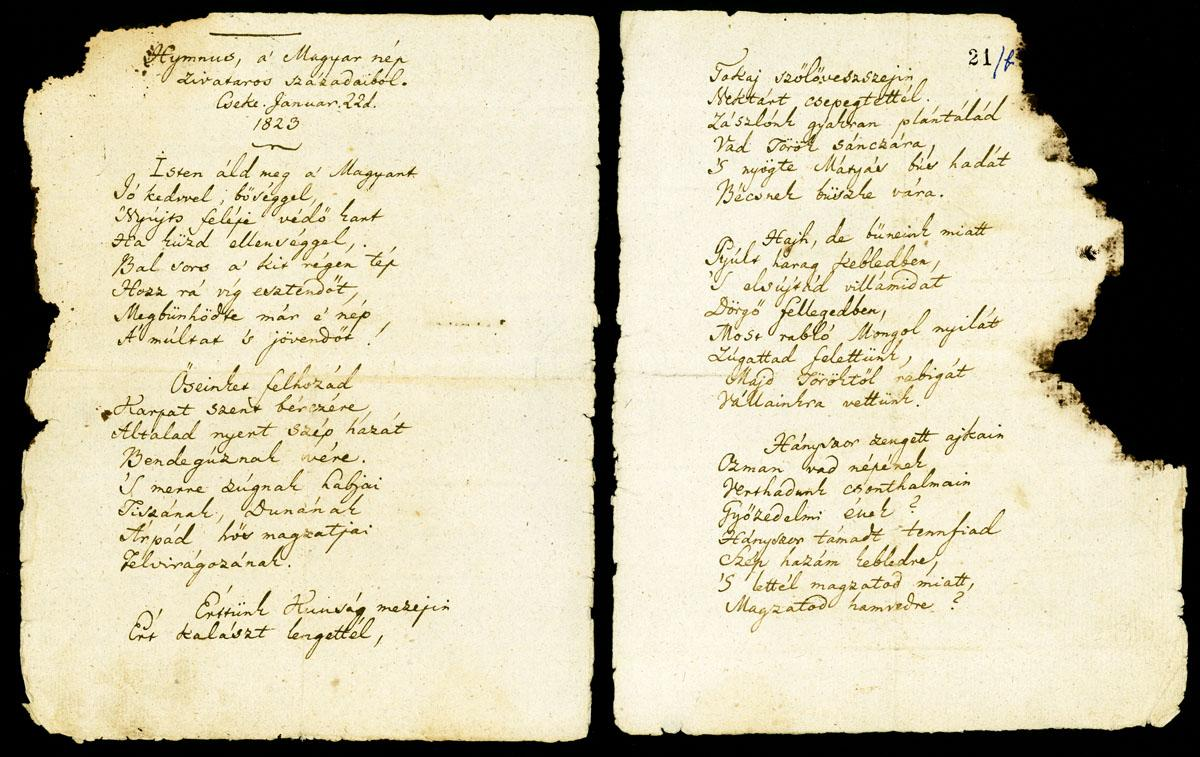 Hymnus, a' Magyar nép
zivataros századaiból.
Cseke. Januar. 22d.
1823
Isten áld meg a' Magyart
Jó kedvvel, bőséggel,
Nyujts feléje védő kart
Ha küzd ellenséggel,
Bal sors a' kit régen tép
Hozz rá víg esztendőt,
Megbünhödte már e' nép
A' múltat 's jövendőt!
Őseinket felhozád
Kárpát szent bérczére,
Általad nyert szép hazát
Bendegúznak vére.
'S merre zúgnak habjai
Tiszának, Dunának
Árpád hős magzatjai
Felvirágozának.
Értünk Kunság mezejin
Ért kalászt lengettél,
21/b
Tokaj szőlővesszejin
Nektárt csepegtettél.
Zászlónk gyakran plántálád
Vad Török sánczára,
'S nyögte Mátyás bús hadát
Bécsnek büszke vára.
Hajh, de bűneink miatt
Gyúlt harag kebledben,
'S elsújtád villámidat
Dörgő fellegedben,
Most rabló Mongol nyilát
Zúgattad felettünk,
Majd Töröktől rabigát
Vállainkra vettünk.
Hányszor zengett ajkain
Ozman vad népének
Verthadunk csonthalmain
Győzedelmi ének?
Hányszor támadt tennfiad
Szép hazám kebledre,
'S lettél magzatod miatt,
Magzatod hamvedre?